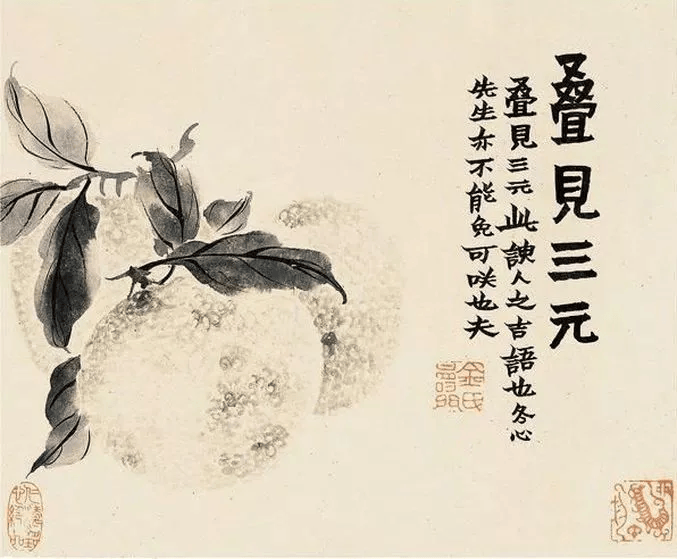 叠見三元
叠見三元此諛人之吉語也冬心
先生亦不能免可咲也夫
金氏